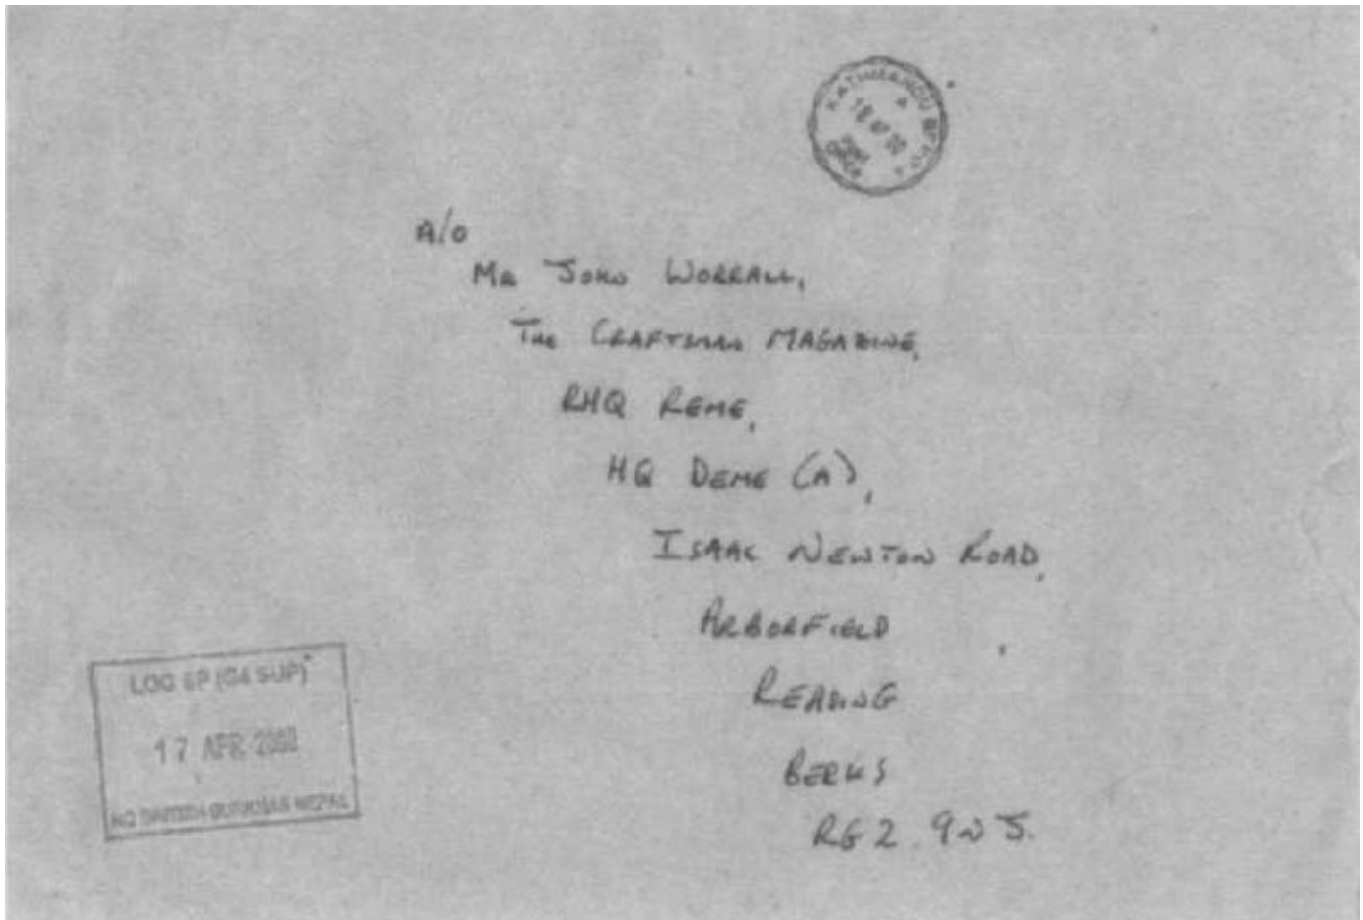 KATHMANDU
18 AP 00
A/O
MR JOHN WORRALL,
THE CRAFTSMAN MAGAZINE,
RHQ REME,
HQ DEME (A),
ISAAC NEWTON ROAD,
ARBORFIELD,
READING
BERKS
RG2 9NJ.
LOG SP (G4 SUP)
17 APR 2000
HQ BRITISH GURKHAS NEPAL